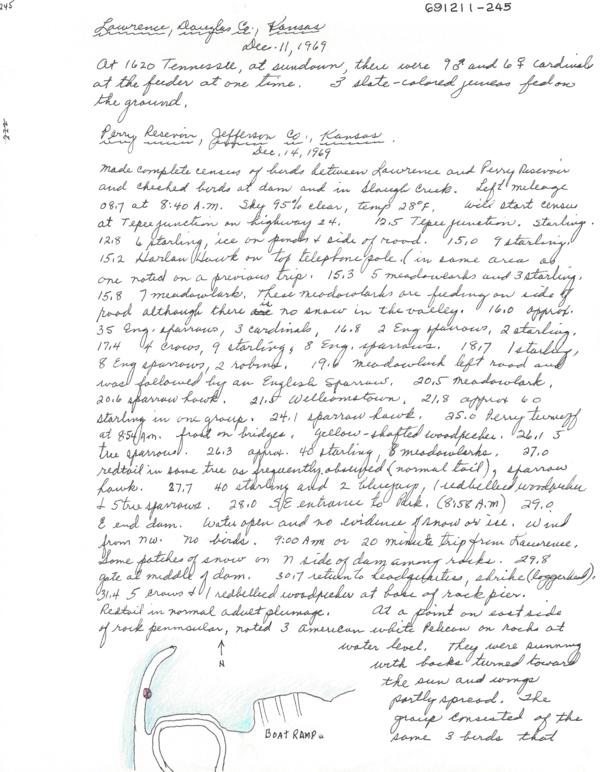 245
691211-245
Lawrence, Douglas Co., Kansas
Dec. 11, 1969
At 1620 Tennessee, at sundown, there were 9♂ and 6♀ cardinals
at the feeder at one time. 3 slate-colored juncos fed on
the ground.
Perry Resevoir, Jefferson Co., Kansas.
Dec. 14, 1969
Made complete census of birds between Lawrence and Perry Resevoir
and checked birds at dam and in Slough Creek. Left mileage
08.7 at 8:40 A.M. Sky 95% clear, temp 28°F. Will start census
at Tepee junction on highway 24. 12.5 Tepee junction. Starling.
12.8 6 starling, ice on ponds & side of road. 15.0 9 starling.
15.2 Harlan Hawk on top telephone pole (in same area as
one noted on a previous trip. 15.3 5 meadowlarks and 3 starling.
15.8 7 meadowlark. These meadowlarks are feeding on side of
road although there is no snow in the valley. 16.0 approx.
35 Eng. sparrows, 3 cardinals, 16.8 2 Eng sparrows, 2 starling.
17.4 4 crows, 9 starling, 8 Eng. sparrows. 18.7 1 starling,
8 Eng sparrows, 2 robins. 19.6 meadowlark left road and
was followed by an English Sparrow. 20.5 meadowlark,
20.6 sparrow hawk. 21.5 Williamstown, 21.8 approx 60
starling in one group. 24.1 sparrow hawk. 25.0 Perry turnoff
at 854 A.m. frost on bridges. yellow-shafted woodpecker. 26.1 5
tree sparrows. 26.3 approx. 40 starling, 8 meadowlarks. 27.0
redtail in same tree as frequently observed (normal tail), sparrow
hawk. 27.7 40 starling and 2 bluejays, 1 redbellied woodpecker
& 5 tree sparrows. 28.0 S/E entrance to Park. (8:58 A.M) 29.0
E end dam. Water open and no evidence of snow or ice. Wind
from NW. No birds. 9:00 AM or 20 minute trip from Lawrence.
Some patches of snow on N side of dam among rocks. 29.8
gate at middle of dam. 30.7 return to headquarters, shrike (loggerhead).
31.4 5 crows & 1 redbellied woodpecker at base of rock pier.
Redtail in normal adult plumage. At a point on east side
of rock penninsular, noted 3 American white Pelican on rocks at
water level. They were sunning
with backs turned toward
the sun and wings
partly spread. The
group consisted of the
same 3 birds that
N
BOAT RAMP